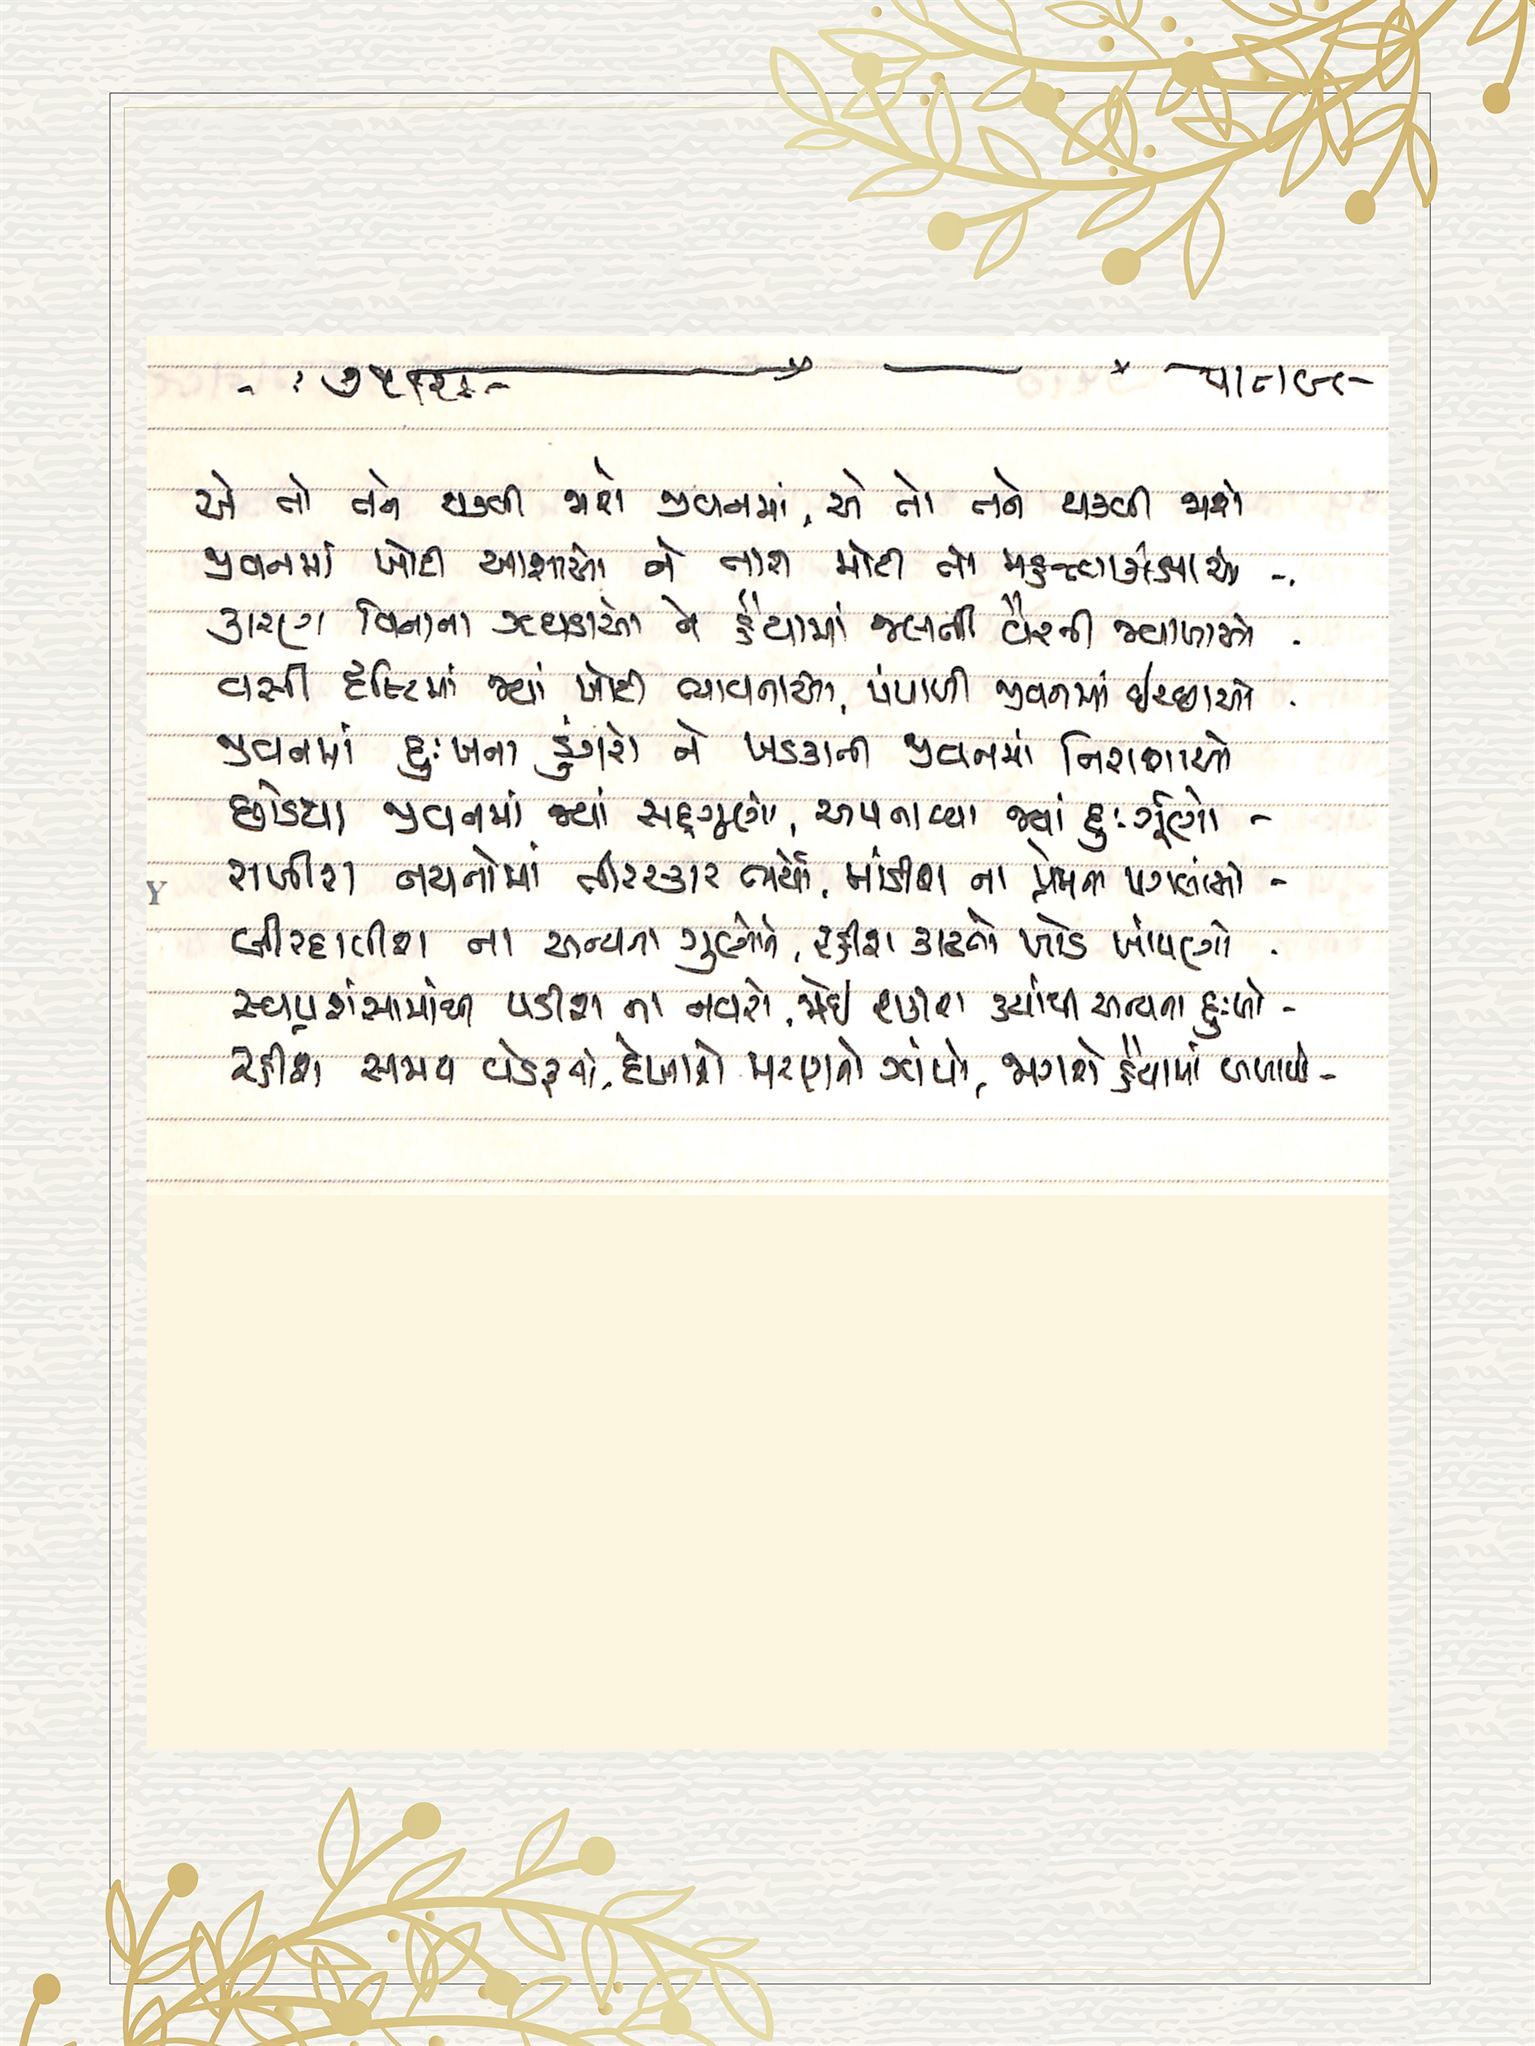 એ તો તને થકવી જાશે જીવનમાં, એ તો તને થકવી જાશે
જીવનમાં ખોટી આશાઓ ને તારી મોટી તો મહત્ત્વાકાંક્ષાઓ -
કારણ વિનાના ઝઘડાઓ ને હૈયામાં જલતી વૈરની જ્વાળાઓ .
વસી દૃષ્ટિમાં જ્યાં ખોટી ભાવનાઓ, પંપાળી જીવનમાં ઇચ્છાઓ .
જીવનમાં દુઃખના ડુંગરો ને ખડકાતી જીવનમાં નિરાશાઓ
છોડયા જીવનમાં જ્યાં સદ્દગુણો, અપનાવ્યા જ્યાં દુઃર્ગુણો -
રાખીશ નયનોમાં તીરસ્કાર ભર્યો, માંડીશ ના પ્રેમના પગલાંઓ -
બીરદાવીશ ના અન્યના ગુણોને, રહીશ કાઢતો ખોડ ખાંપણો .
સ્વપ્રશંસામાંથી પડીશ ના નવરો, જોઈ શકીશ ક્યાંથી અન્યના દુઃખો -
રહીશ સમય વેડફતો, દેખાશે મરણનો ઝાંપો, જાગશે હૈયામાં